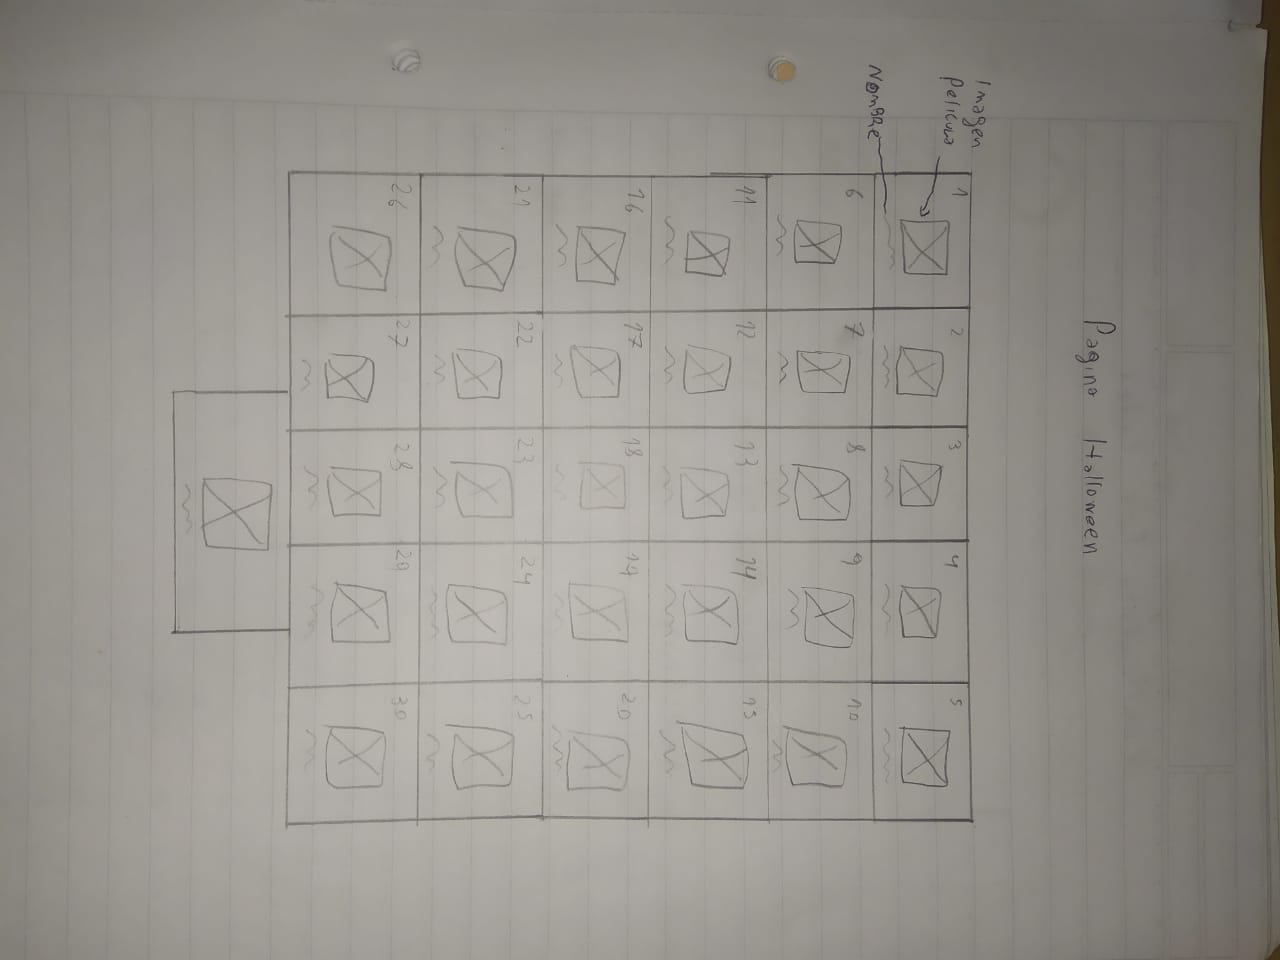 Pagina Halloween
Imagen
Pelicula
Nombre
1 2 3 4 5
6 7 8 9 10
11 12 13 14 15
16 17 18 19 20
21 22 23 24 25
26 27 28 29 30